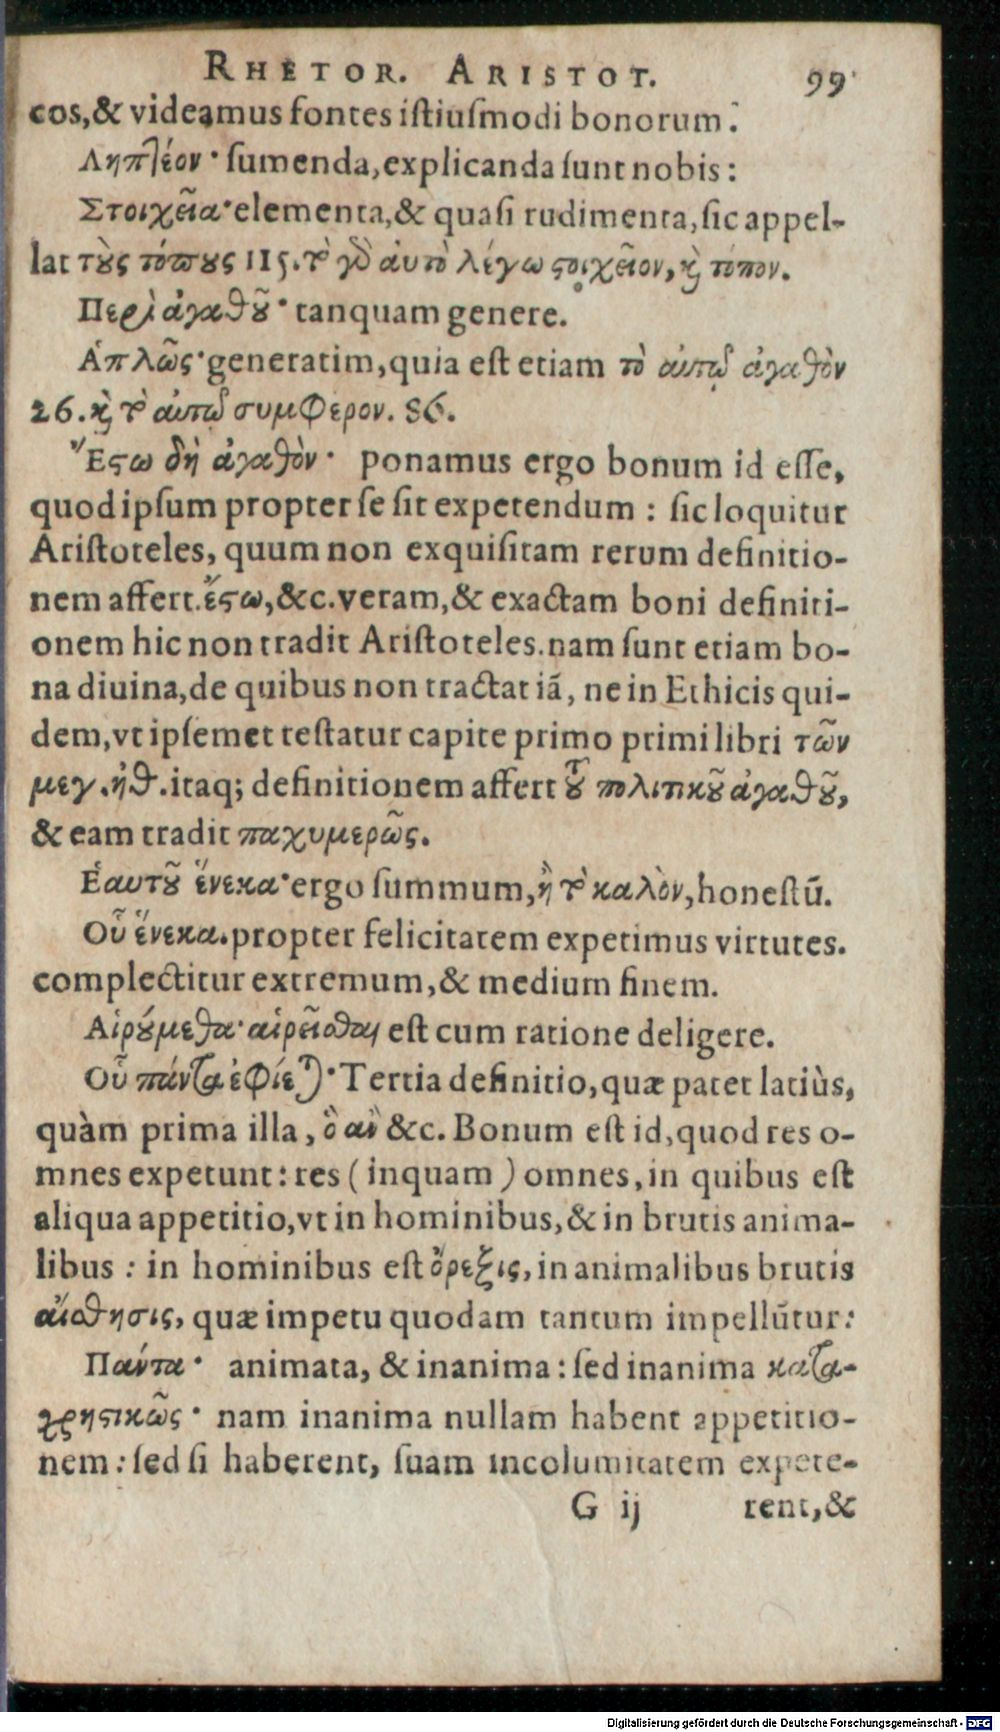 RHETOR. ARISTOT. 99
cos,& videamus fontes iſtiuſmodi bonorum.
Ληπτέον· ſumenda,explicanda ſunt nobis:
Στοιχεῖα·elementa,& quaſi rudimenta,ſic appel-
lat τοὺς τόπους 115.τὸ γὸ αὐτὸ λέγω ϛοιχεῖον,ϗ τόπον.
Περὶ ἀγαθοῦ· tanquam genere.
Ἁπλῶς·generatim,quia eſt etiam τὸ αὐτῷ ἀγαθὸν
26.ϗ τὸ αὐτῷ συμφερον. 86.
Ἔϛω δὴ ἀγαθὸν· ponamus ergo bonum id eſſe,
quod ipſum propter ſe ſit expetendum : ſic loquitur
Ariſtoteles, quum non exquiſitam rerum definitio-
nem affert.ἔϛω,&c.veram,& exactam boni definiti-
onem hic non tradit Ariſtoteles.nam ſunt etiam bo-
na diuina,de quibus non tractat iã, ne in Ethicis qui-
dem,vt ipſemet teſtatur capite primo primi libri τῶν
μεγ.ἠθ.itaq; definitionem affert τοῦ πολιτικοῦ ἀγαθοῦ,
& eam tradit παχυμερῶς.
Ἑαυτοῦ ἕνεκα·ergo ſummum,ἢ τὸ καλὸν,honeſtũ.
Οὗ ἕνεκα.propter felicitatem expetimus virtutes.
complectitur extremum,& medium finem.
Αἱρούμεθα·αἱρεῖσθαι eſt cum ratione deligere.
Οὗ πάντα ἐφίεται·Tertia definitio,quæ patet latiùs,
quàm prima illa, ὃ αὐ &c. Bonum eſt id,quod res o-
mnes expetunt:res (inquam) omnes,in quibus eſt
aliqua appetitio,vt in hominibus,& in brutis anima-
libus : in hominibus eſt ὄρεξις,in animalibus brutis
αἴσθησις, quæ impetu quodam tantum impellũtur:
Πάντα· animata, & inanima:ſed inanima κατα-
χρηϛικῶς· nam inanima nullam habent appetitio-
nem:ſed ſi haberent, ſuam incolumitatem expete-
G ij rent,&
Digitalisierung gefördert durch die Deutsche Forschungsgemeinschaft - DFG